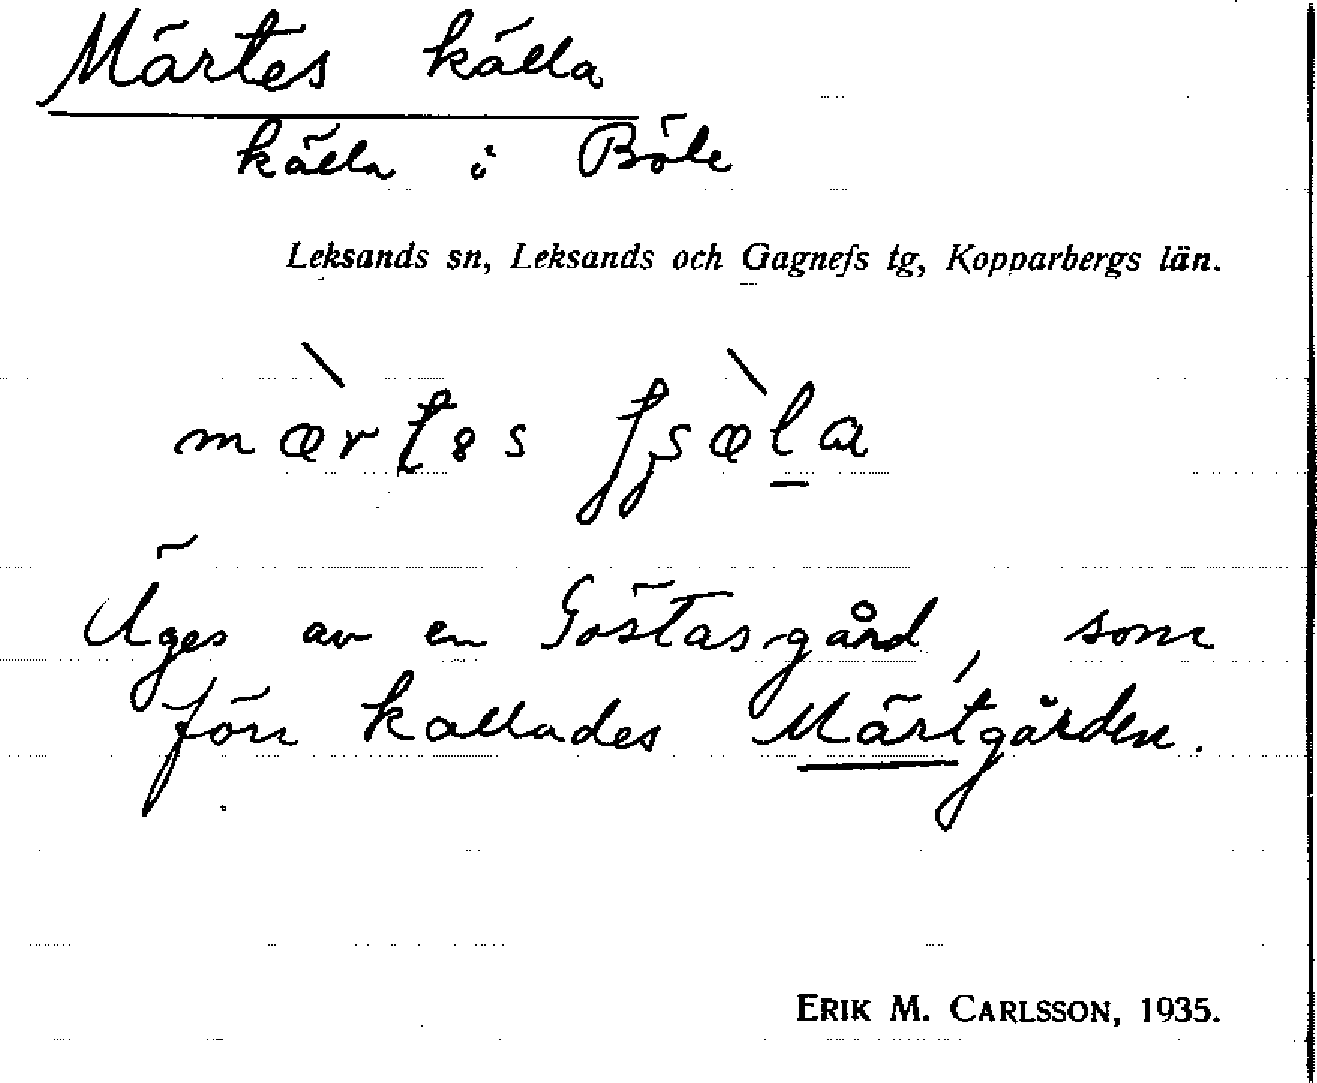 Märtes källa
källa i Böle
Leksands sn, Leksands och Gagnefs tg, Kopparbergs län.
mæ̀rtes fsæ̀l̠a
Äges av en Göstasgård, som
förr kallades Märtgården.
ERIK M. CARLSSON, 1935.